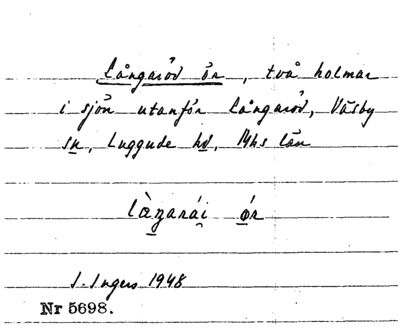 Långaröd ör, två holmar
i sjön utanför Långaröd, Väsby
sn, Luggude hd, Mhs län
làŋarái ór
I. Ingers 1948
Nr 5698.